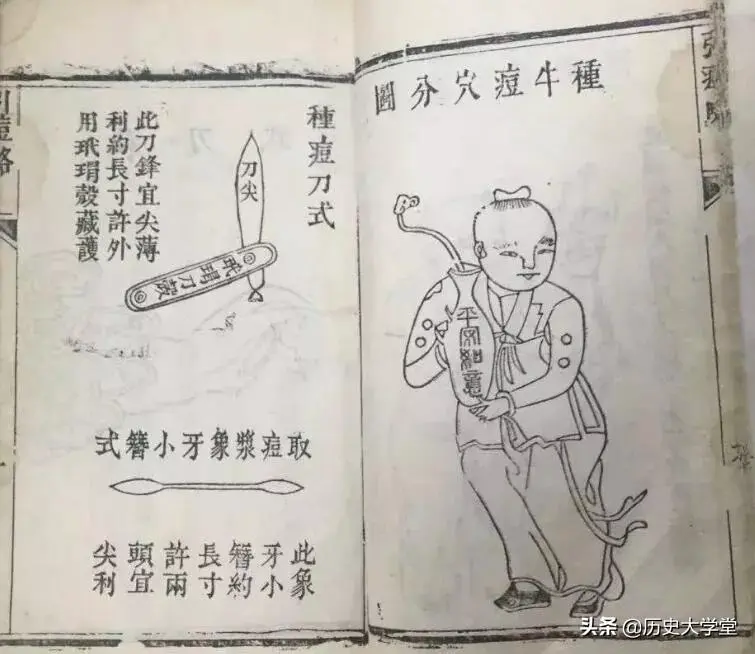 種牛痘穴分圖
平安如意
種痘刀式
刀尖
玳瑁刀殼
此刀鋒宜尖薄
利約長寸許外
用玳瑁殼藏護
取痘漿象牙小簪式
此象
牙小
簪約
長寸
許兩
頭宜
尖利
头条 @历史大学堂